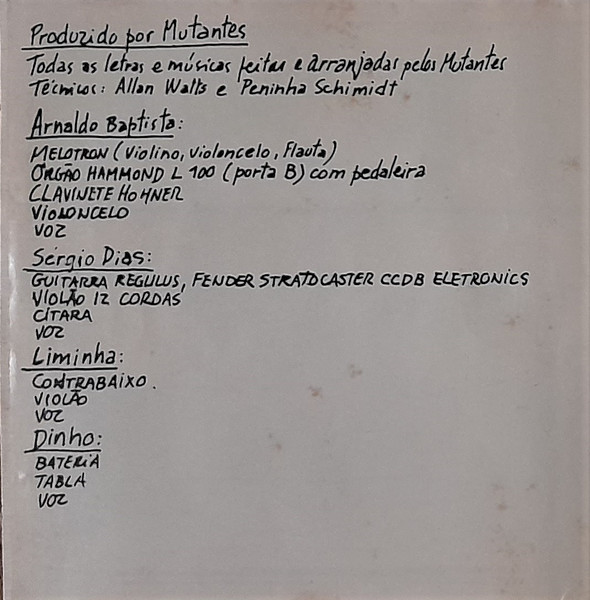 Produzido por Mutantes
Todas as letras e músicas feitas e arranjadas pelos Mutantes
Técnicos: Allan Walls e Peninha Schimidt
Arnaldo Baptista:
MELOTRON (Violino, Violoncelo, Flauta)
ORGÃO HAMMOND L 100 (porta B) com pedaleira
CLAVINETE HOHNER
VIOLONCELO
VOZ
Sérgio Dias:
GUITARRA REGULUS, FENDER STRATOCASTER CCDB ELETRONICS
VIOLÃO 12 CORDAS
CÍTARA
VOZ
Liminha:
CONTRABAIXO.
VIOLÃO
VOZ
Dinho:
BATERIA
TABLA
VOZ